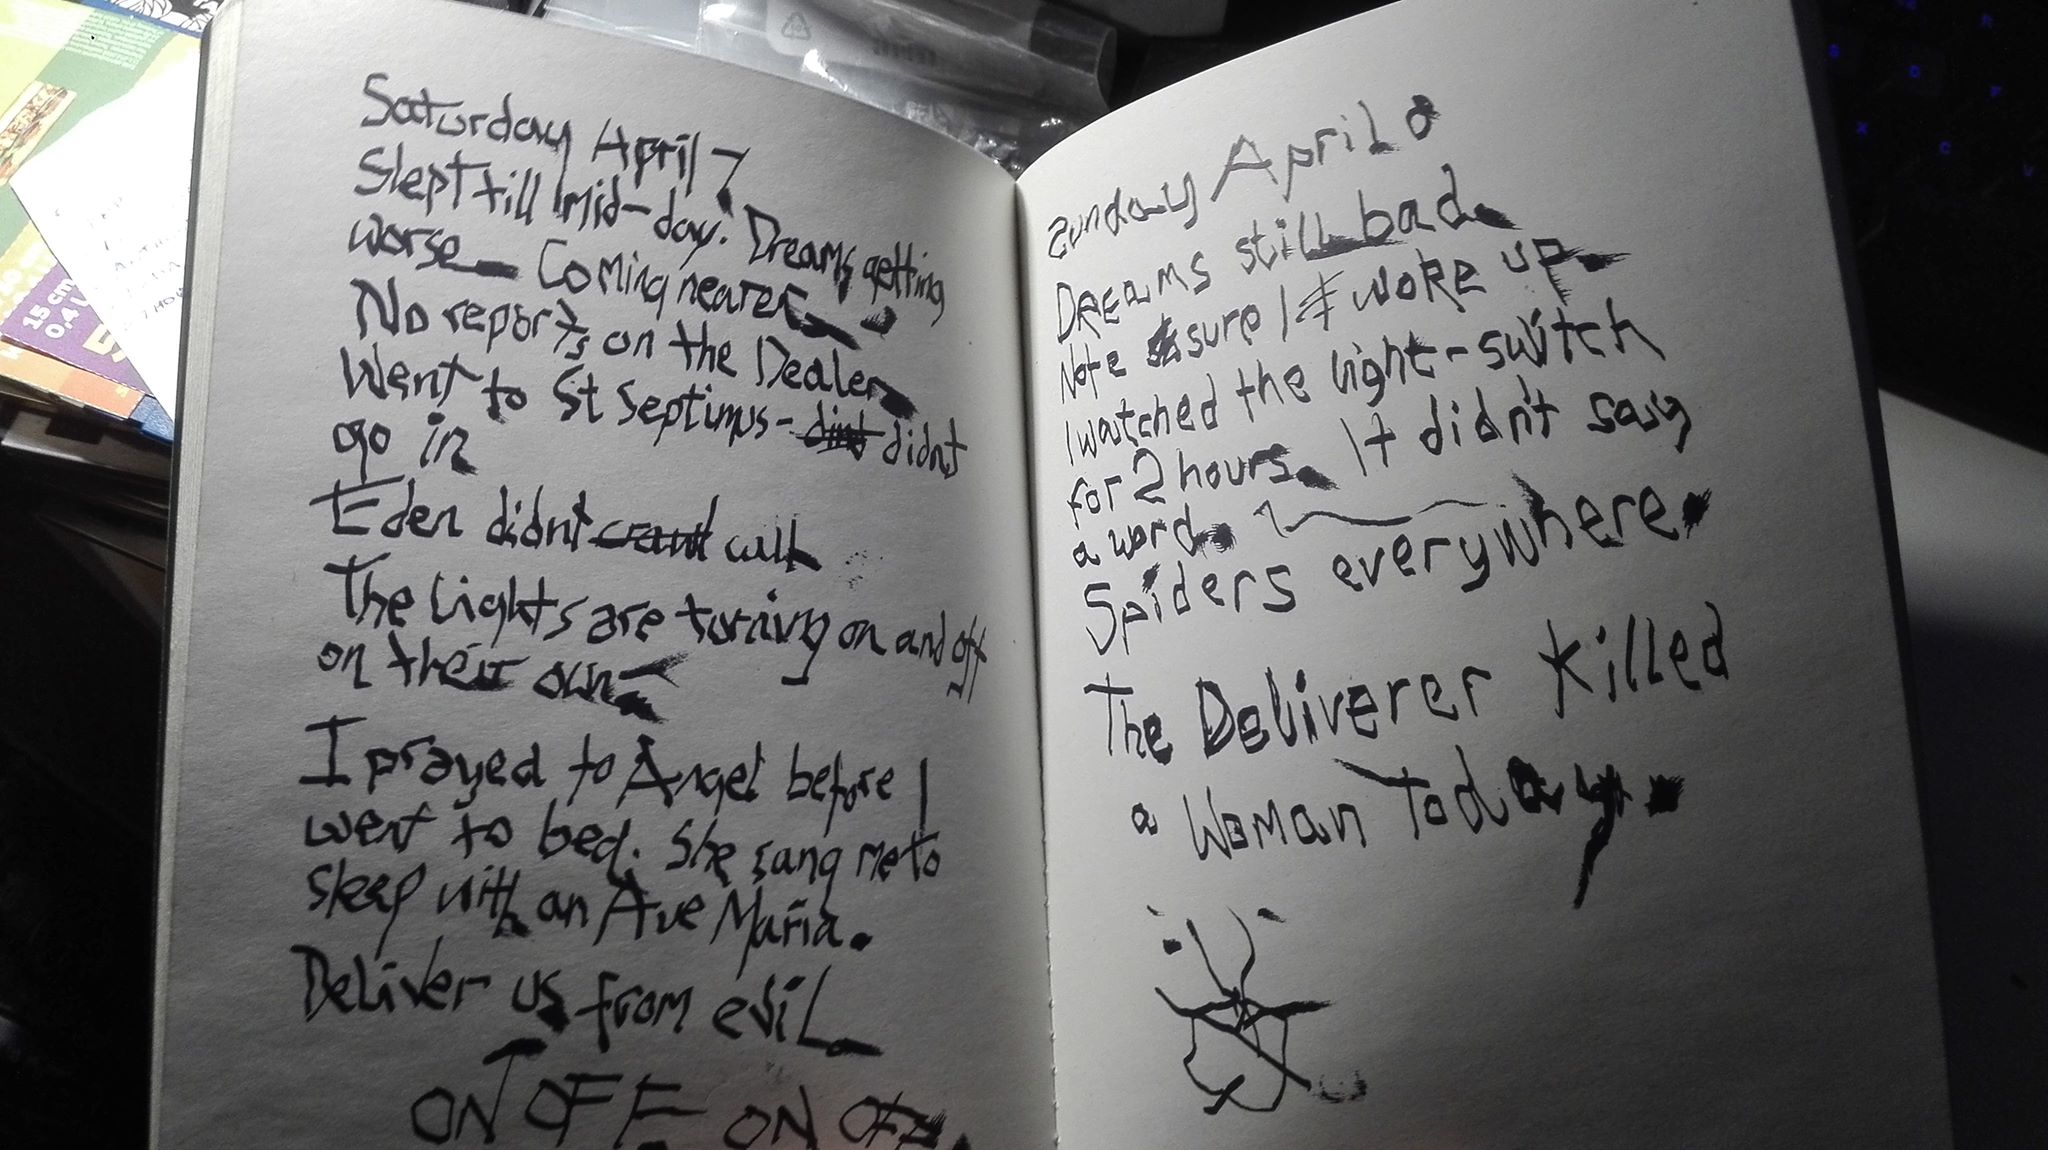 Saturday April 7
Slept till mid-day. Dreams getting
worse. Coming nearer.
No reports on the Dealer
Went to St Septimus - didnt
go in
Eden didnt call
The Lights are turning on and off
on their own
I prayed to Angel before I
went to bed. She sang me to
sleep with an Ave Maria.
Deliver us from evil
ON OFF ON OFF
Sunday April
Dreams still bad.
Note sure I woke up.
I watched the light-switch
for 2 hours. It didn't say
a word.
Spiders everywhere.
The Deliverer killed
a Woman Today.
15 cm